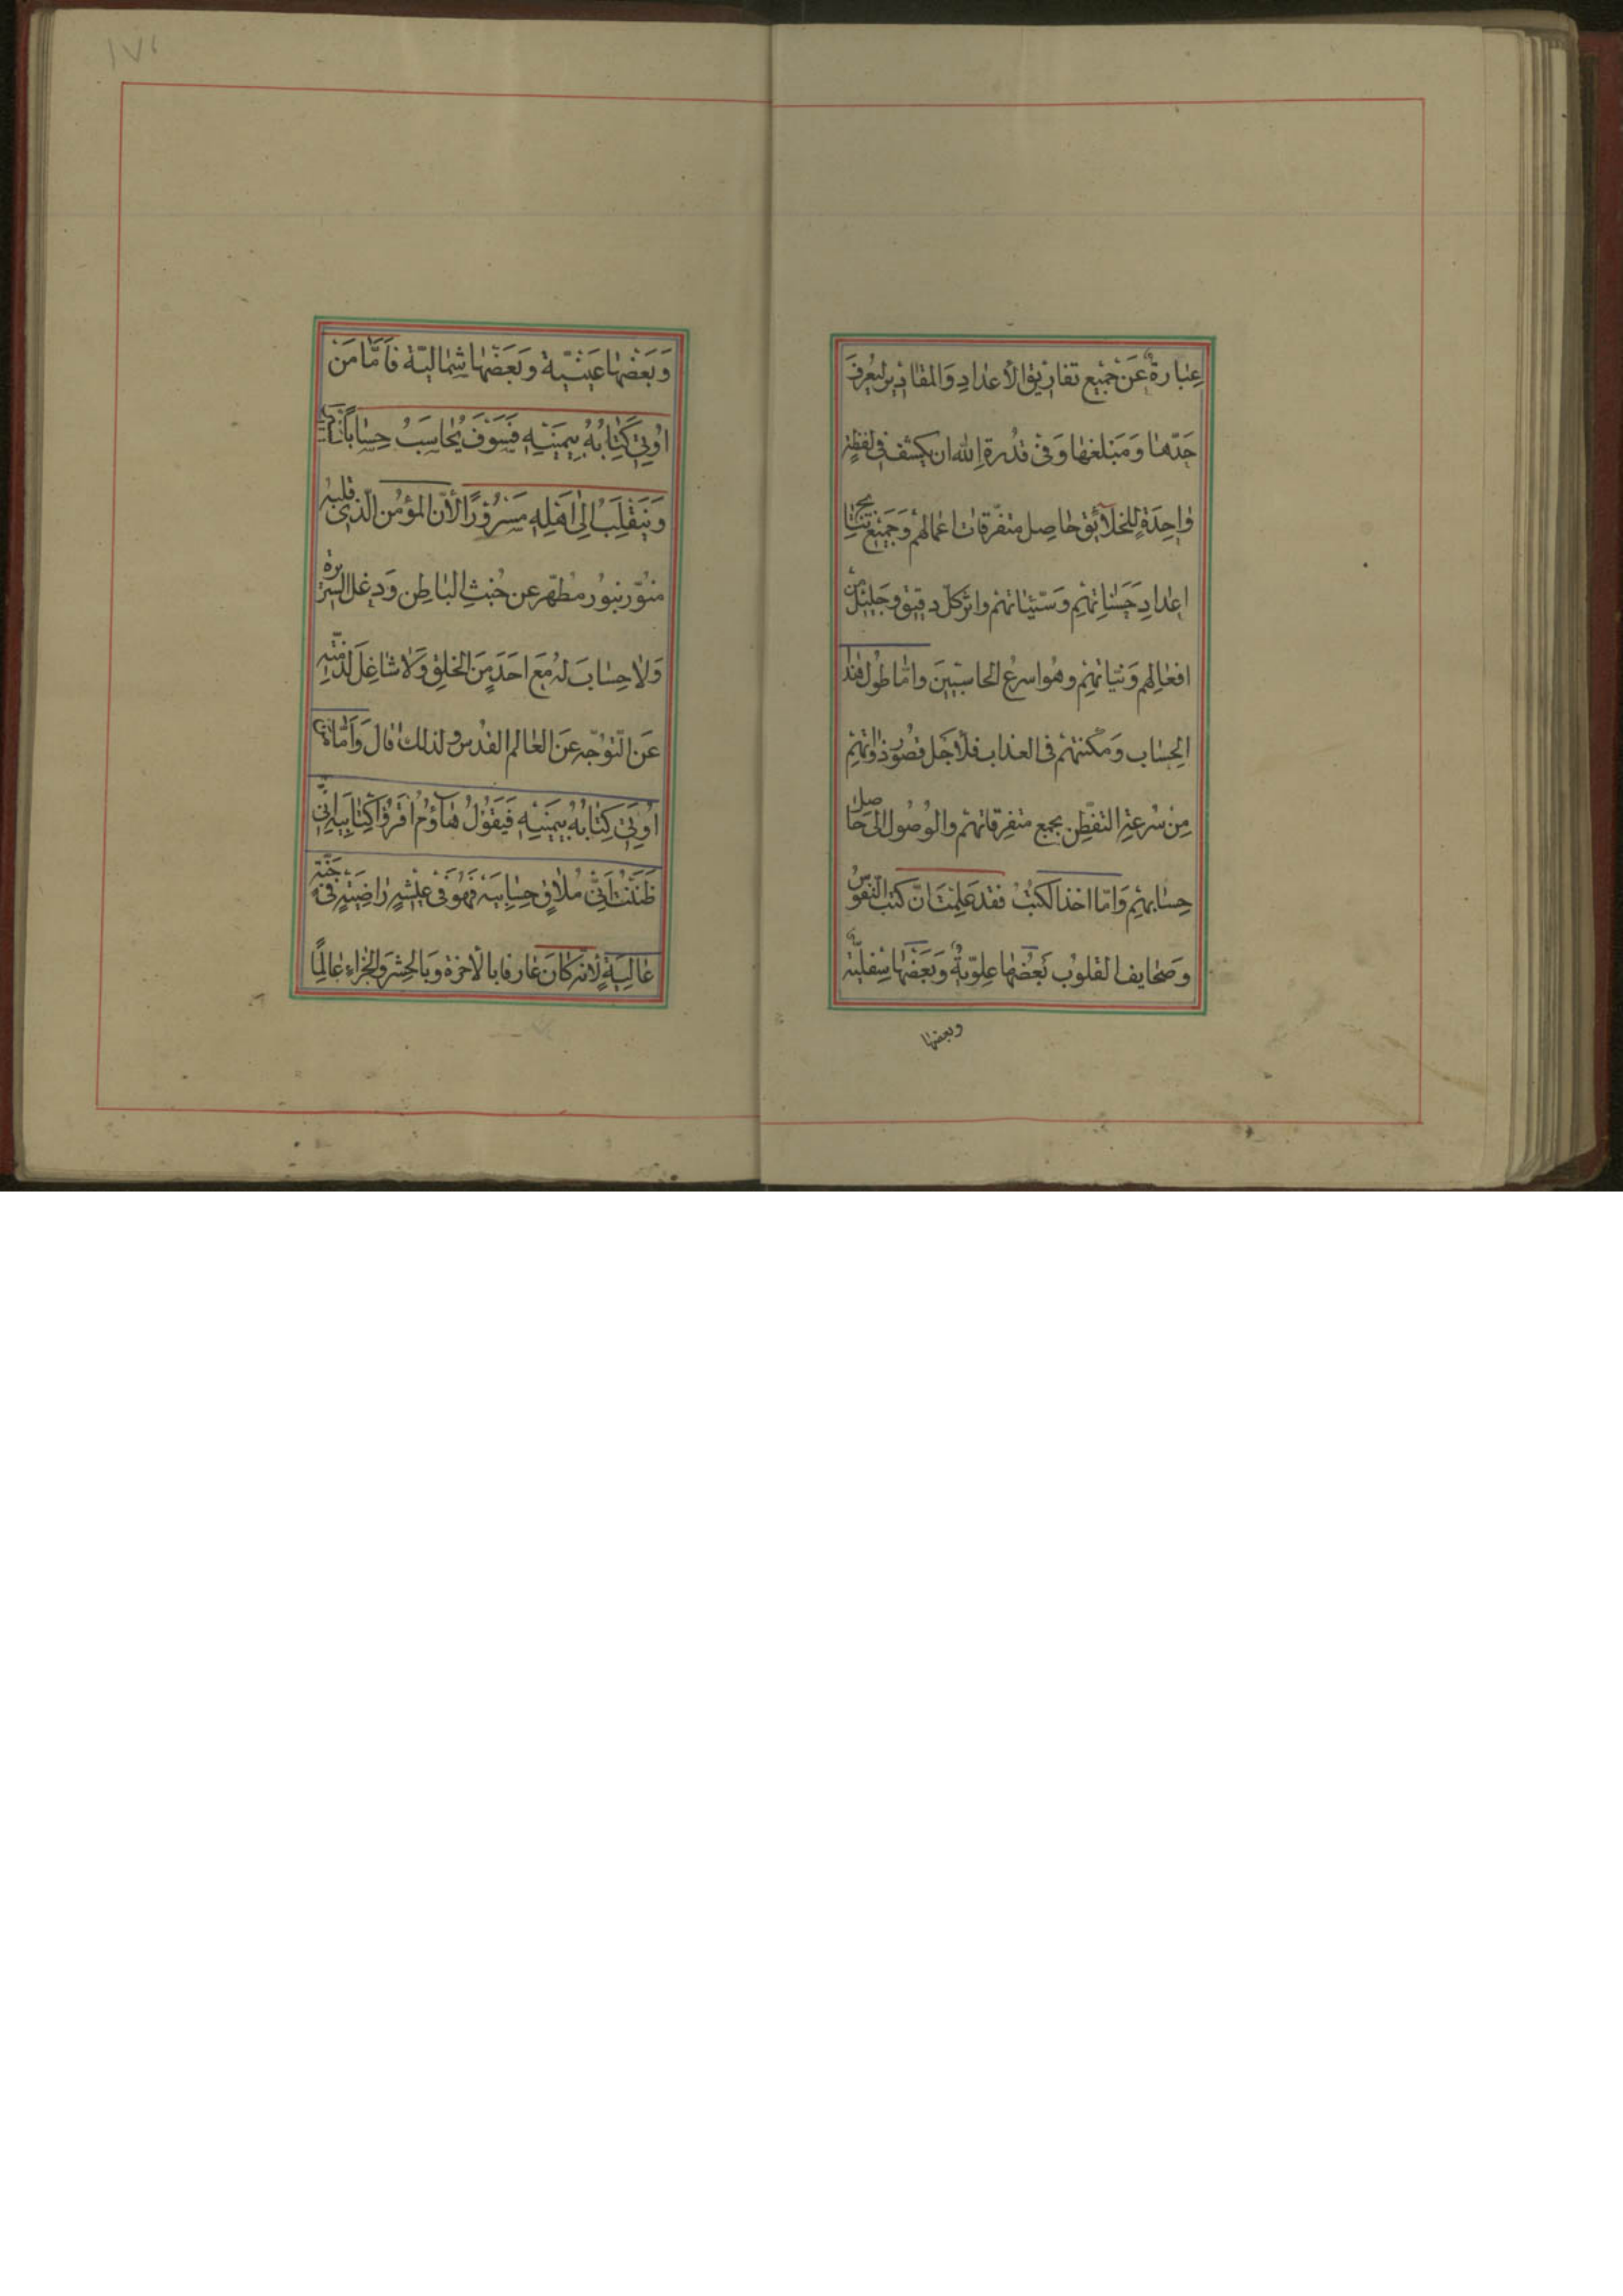 عِبارةٌ عَن جَمْيع تفاريق الأعدادِ وَالمقاديرِ ليُعرفَ
حَدّها وَمَبلغها وَفى قدُرة الله ان يكشف فى لفظةٍ
واحِدَةٍ للخلآئق حاصِل متفّرقات اعمالهم وَجَميْع نتايج
اعدادِ حَسَناتهِم وَسَّيئاتهْم واثر كلّ دقيق وجَليْل من
افعالِهم وَنيّاتهْم وهُو اسرعُ الحاسبْينَ وامّا طُول هذا
الحِساب وَمكنتهْم فى العذاب فلأجَل قصُور ذواتهْم
مِن سُرعَة التفّطن بجمع متفرقاتهْم والوُصُول الىٰ حاصل
حِسابهْم وَامّا اخذ الكتُبْ فقد عَلِمْتَ انّ كتب النّفُوس
وصَحايف القلُوبْ بَعْضُها عِلوّيةٌ وَبَعَضْها سُفليّة
وبعضها
١٧١
وَبَعَضْها يمَينيّة وَبَعَضْها شِماليّة فاَمّا مَنْ
اوُتِىَ كِتابُهُ بِيَميْنِهِ فَسَوْفَ يُحاسَبُ حِساباً
وَينَقْلِبُ اِلىٰ اَهْلِهِ مَسْرُوُراً لأنّ المؤمُن الّذى قلبه
منوّر بنوُر مُطهّر عن خبُث الباطِن وَدِغل السريرة
وَلاٰ حِسابَ لهُ مَع احَدٍ مِنَ الخلق وَلاٰ شاغِلَ لذمّتهِ
عَن التّوجّه عَن العٰالم القدُس ولذلك قال وَاَمّا
اوُتِىَ كِتابُهُ بِيَميْنِهِ فَيَقُوْلُ هاۤؤُمُ اقْرَؤُا كِتابِيَه اِنّى
ظَنَنْتُ اَنّى مُلاقٍ حِسابِيَهْ فَهُوَ فىْ عيْشةٍ راضِيَةٍ فى جَنّةٍ
عالِيَةٍ لأنّه كانَ عارفا بالأخرة وَبالحشرِ وَالجزاءِ عالِماً